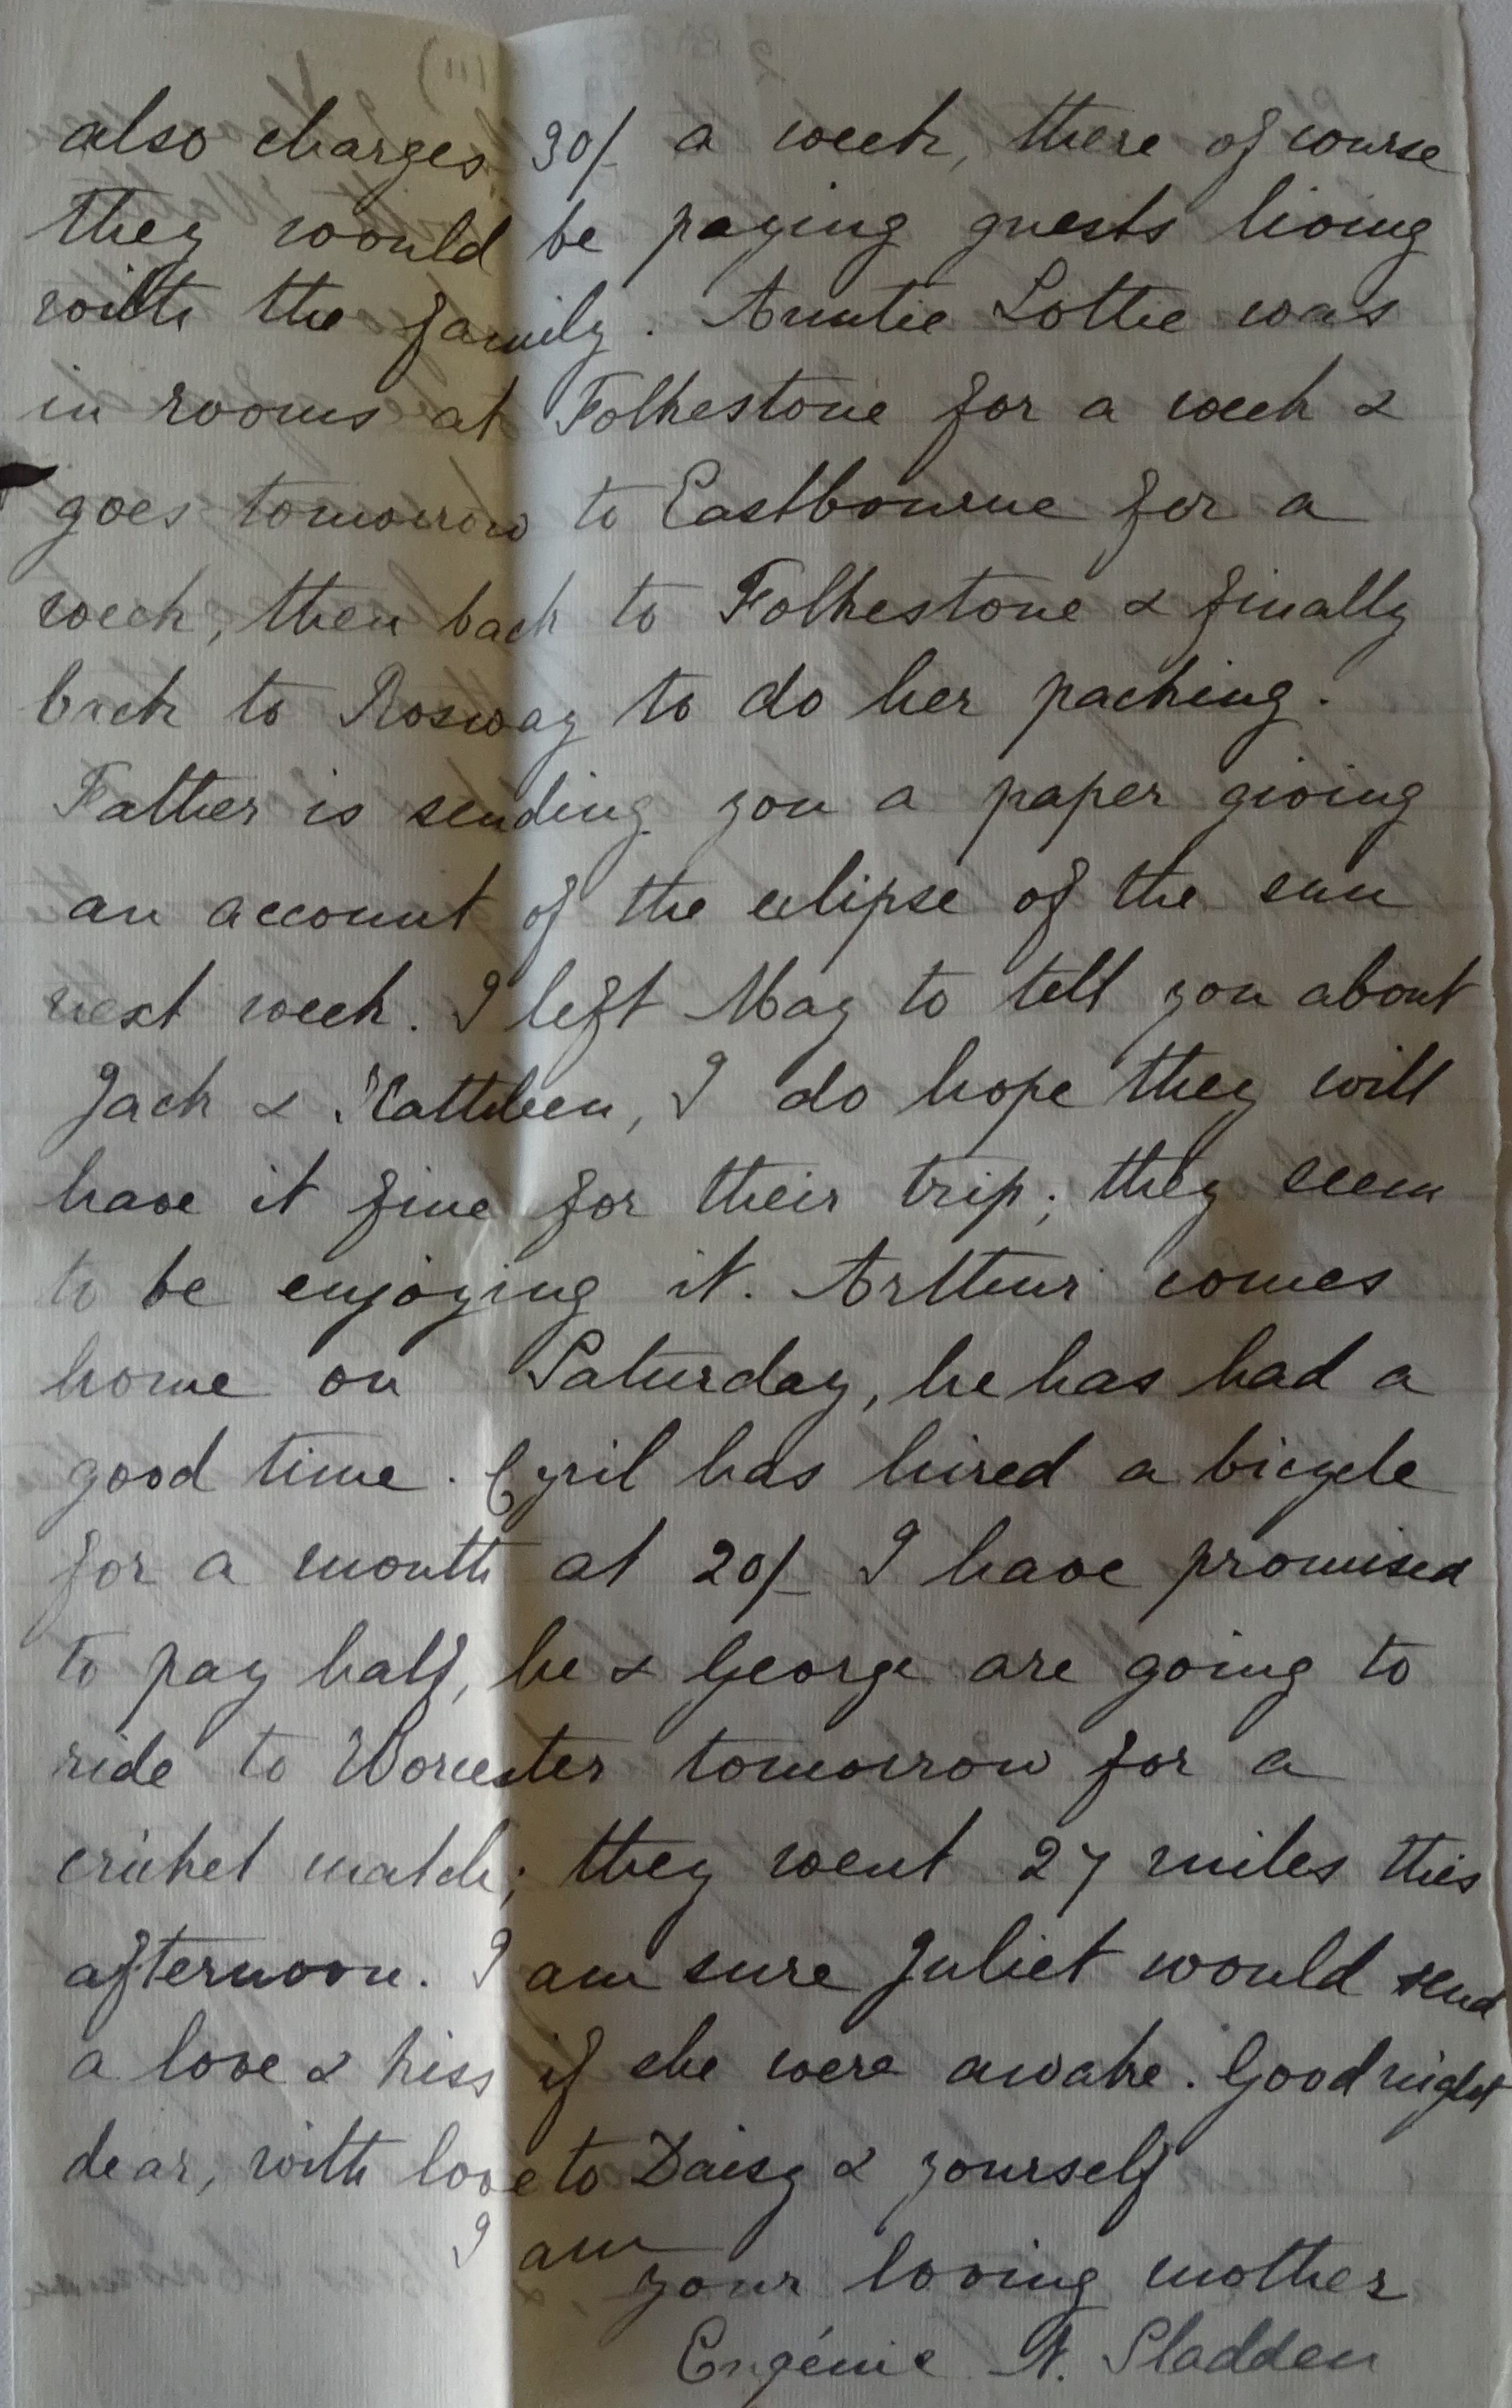 also charges 30/- a week, there of course
they would be paying guests living
with the family. Auntie Lottie was
in rooms at Folkestone for a week &
goes tomorrow to Eastbourne for a
week, then back to Folkestone & finally
back to Rosway to do her packing.
Father is sending you a paper giving
an account of the eclipse of the sun
next week. I left May to tell you about
Jack & Kathleen, I do hope they will
have it fine for their trip; they seem
to be enjoying it. Arthur comes
home on Saturday, he has had a
good time. Cyril has hired a bicycle
for a month at 20/- I have promised
to pay half, he & George are going to
ride to Worcester tomorrow for a
cricket match; they went 27 miles this
afternoon. I am sure Juliet would send
a love & kiss if she were awake. Good night
dear, with love to Daisy & yourself
I am
your loving mother
Eugénie N. Sladden